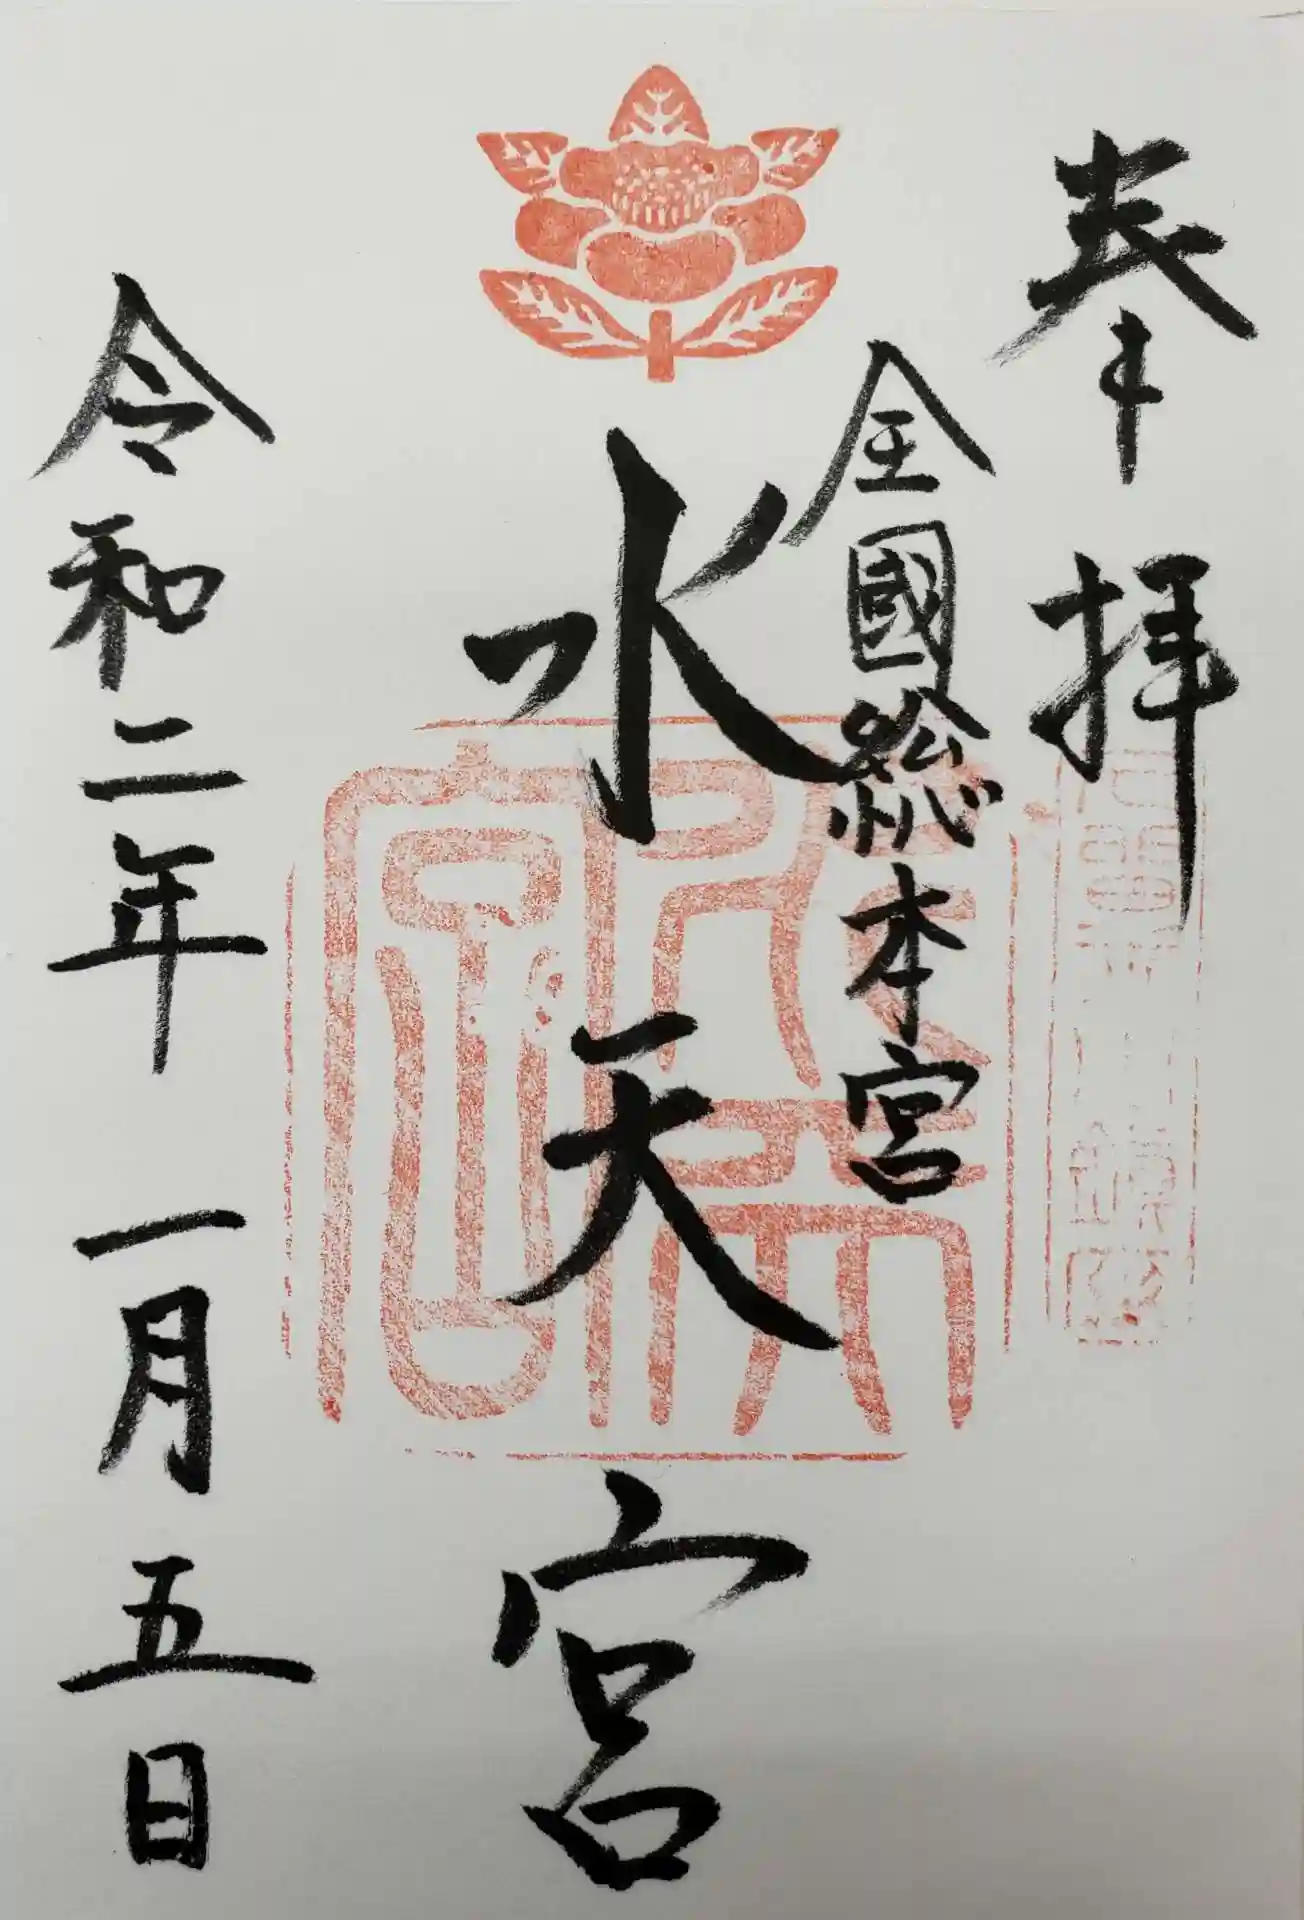 奉拝
全國総本宮
水天宮
令和二年 一月五日